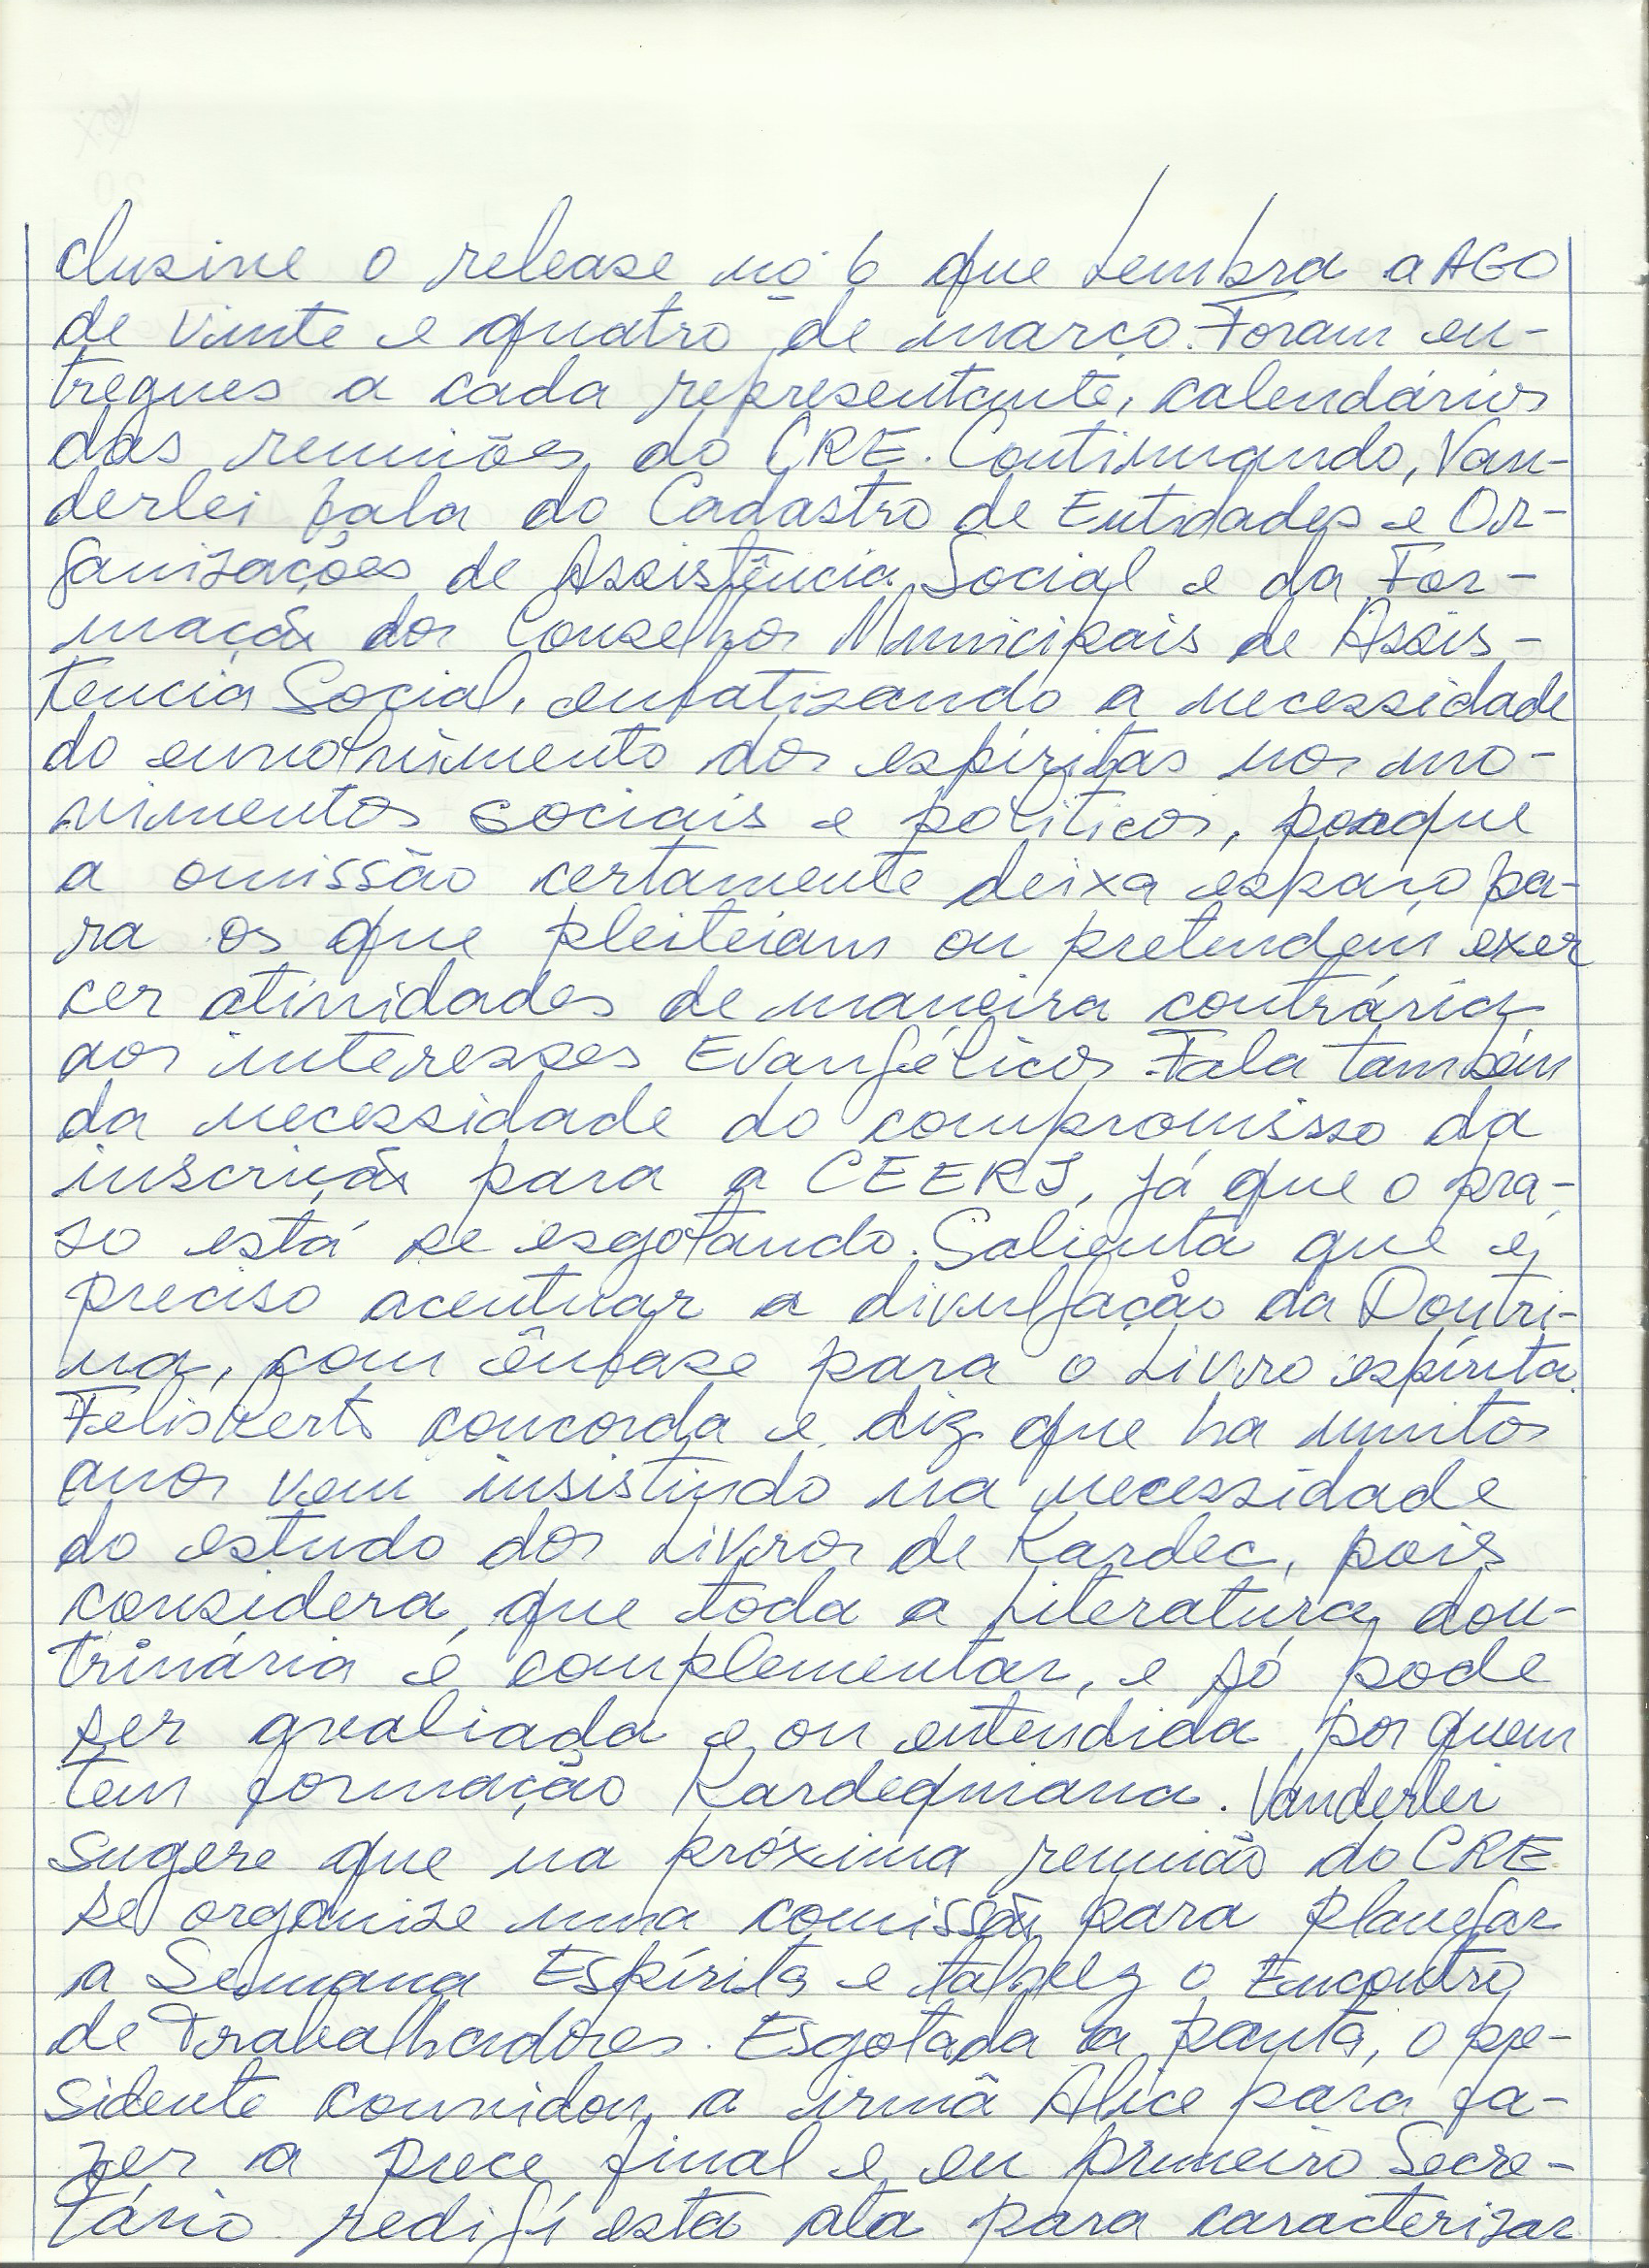 clusive o release nº 6 que Lembra a AGO
de vinte e quatro de março. Foram en-
tregues a cada representante, calendários
das reuniões do CRE. Continuando, Van-
derlei fala do Cadastro de Entidades e Or-
ganizações de Assistência Social e da For-
mação dos Conselhos Municipais de Assis-
tencia Social, enfatizando a necessidade
do envolvimento dos espíritas nos mo-
vimentos sociais e políticos, porque
a omissão certamente deixa espaço pa-
ra os que pleiteiam ou pretendem exer
cer atividades de maneira contrária
aos interesses Evangélicos. Fala também
da necessidade do compromisso da
inscrição para a CEERJ, já que o pra-
zo está se esgotando. Salienta que é
preciso acentuar a divulgação da Doutri-
na, com ênfase para o Livro espírita.
Felisberto concorda e diz que ha muitos
anos vem insistindo na necessidade
do estudo dos Livros de Kardec, pois
considera que toda a Literatura dou-
trinária é complementar, e só pode
ser avaliada e ou entendida por quem
tem formação Kardequiana. Vanderlei
sugere que na próxima reunião do CRE
se organize uma comissão para planejar
a Semana Espírita e talvez o Encontro
de Trabalhadores. Esgotada a pauta, o pre-
sidente convidou a irmã Alice para fa-
zer a prece final e eu primeiro Secre-
tário redigí esta ata para caracterizar